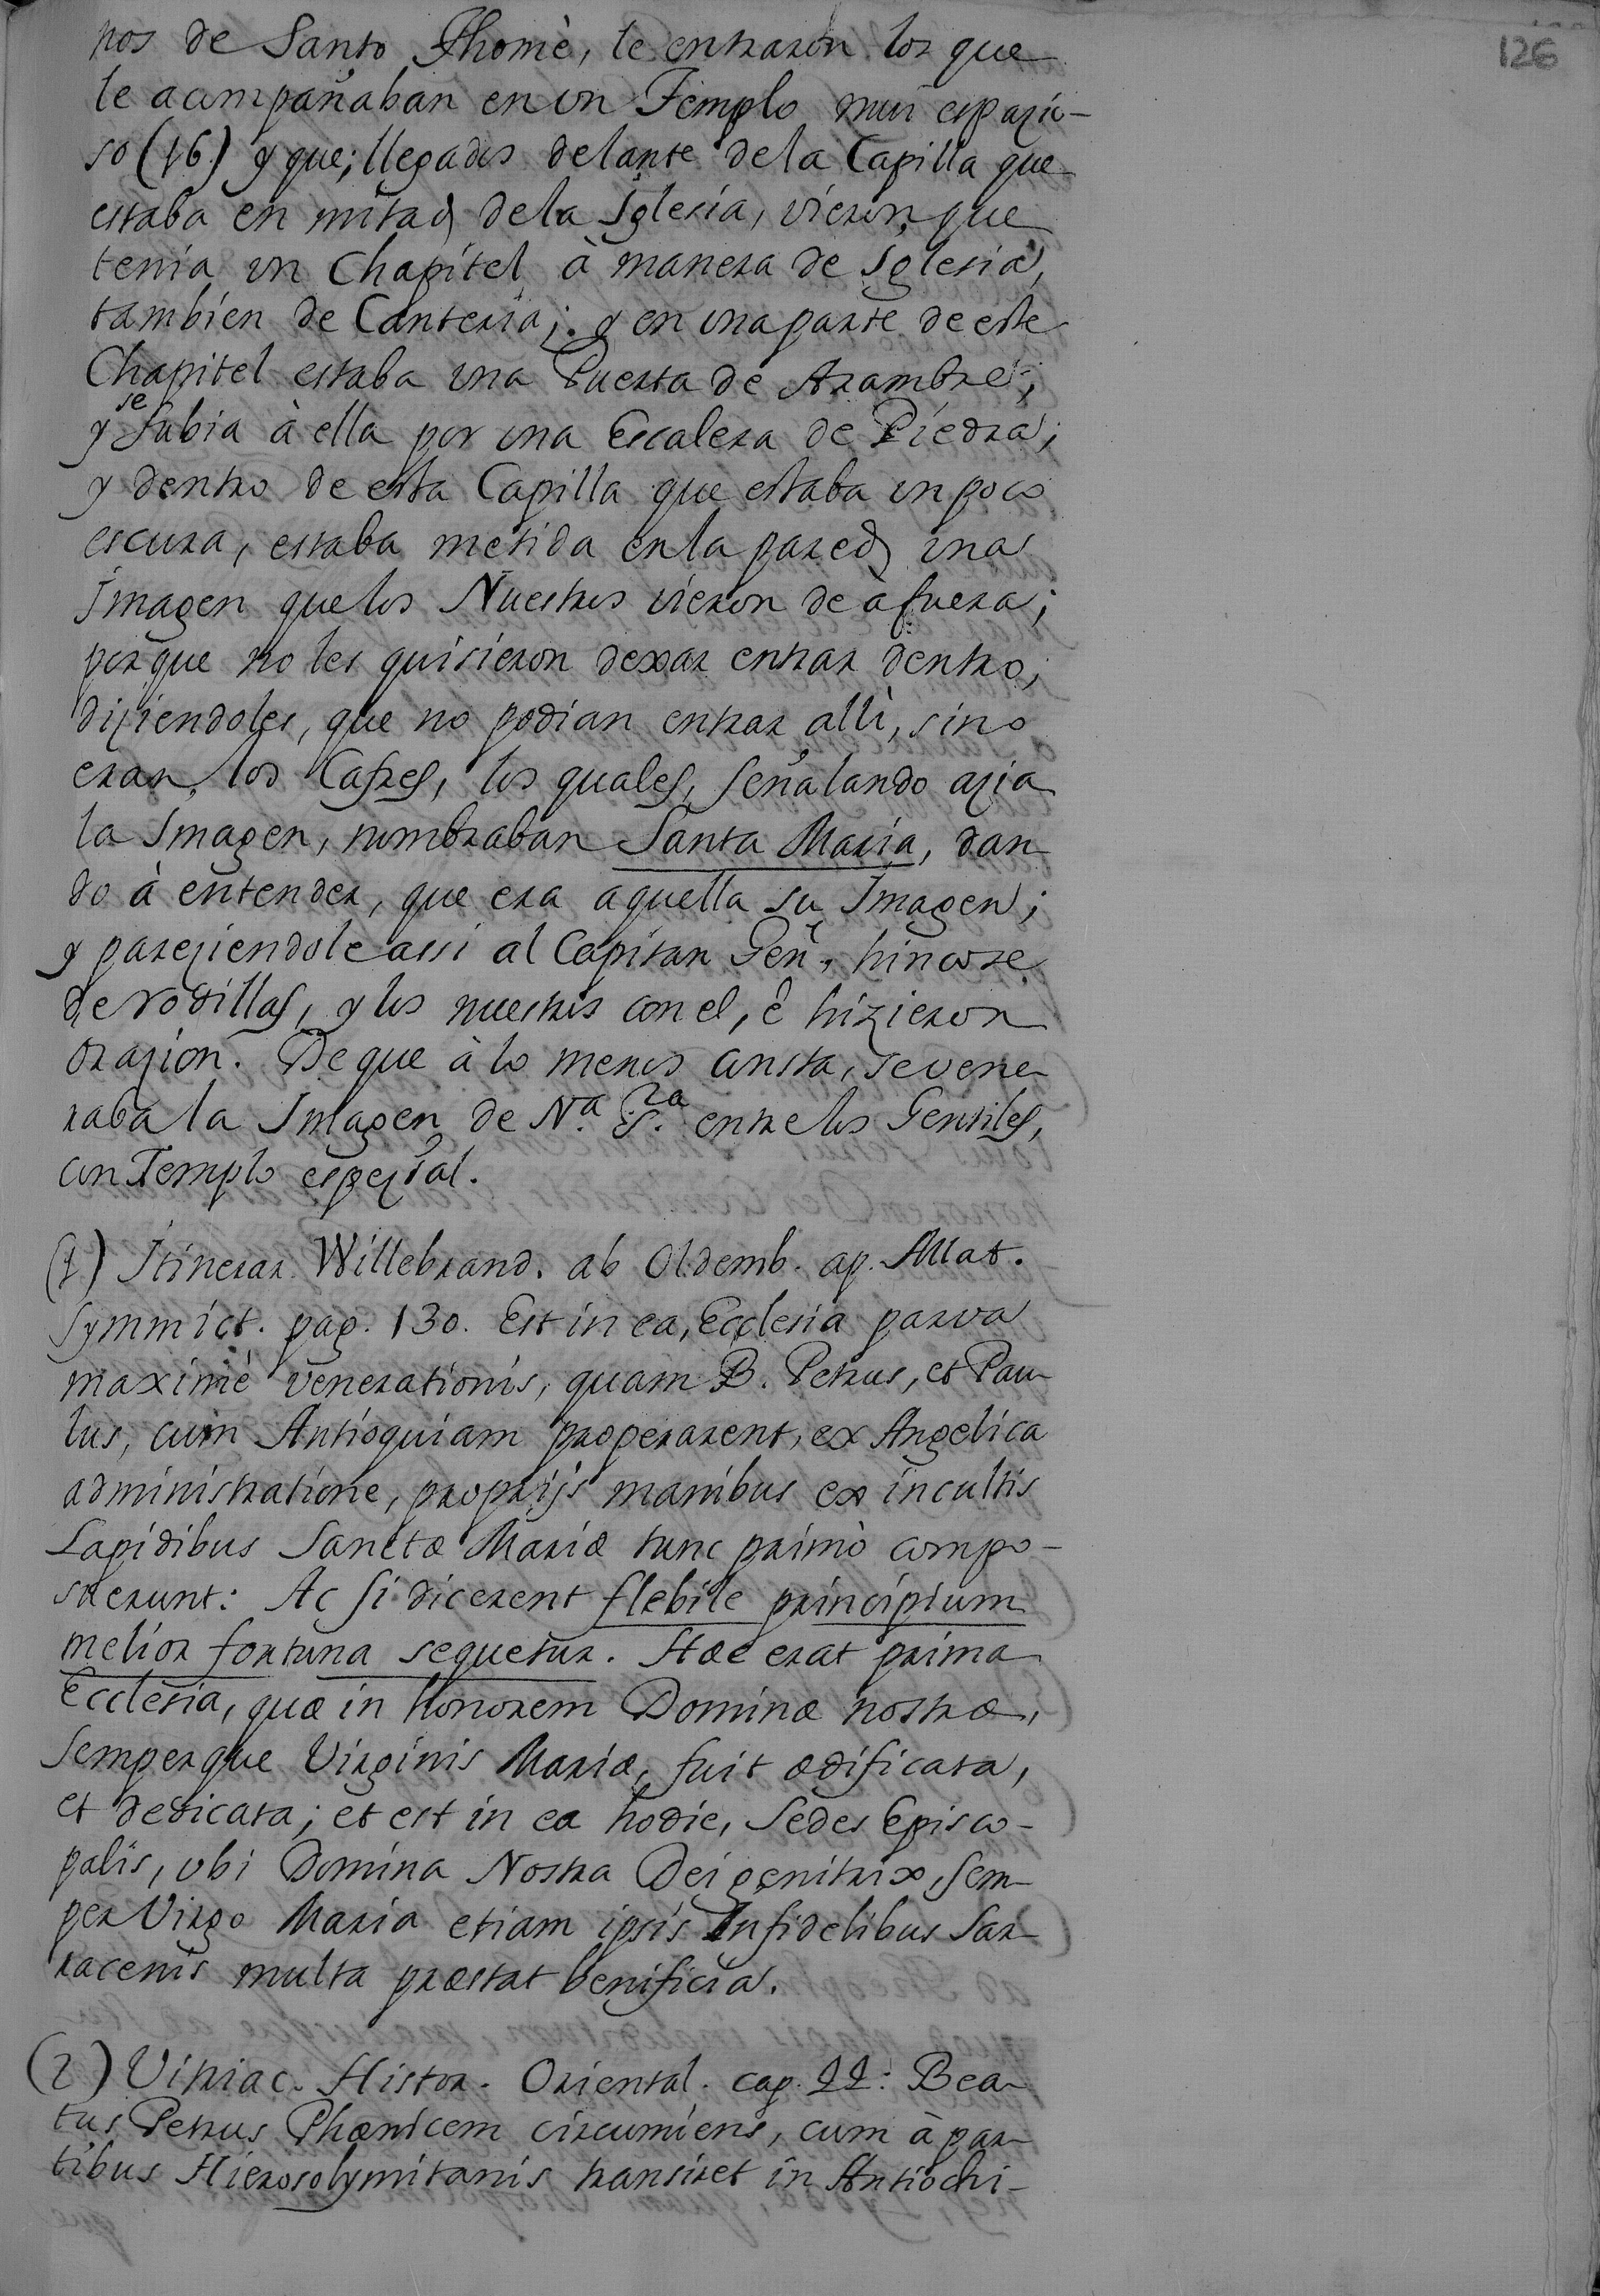 126
nos de Santo Thomè, le entraron los que
le acompañaban en un Templo mui espazio-
so (16) y que; llegados delante de la Capilla que
estaba en mitad de la Iglesia, vieron que
tenia un Chapitel à manera de Iglesia,
tambien de Canteria; y en una parte de este
Chapitel estaba una Puerta de Arambre;
y se subia à ella por una Escalera de Piedra;
y dentro de esta Capilla que estaba un poco
escura, estaba metida en la pared una
Imagen que los Nuestros vieron de àfuera;
porque no les quisieron dexar entrar dentro,
diziendoles, que no podian entrar alli, sino
eran los Cafres, los quales, señalando azia
la Imagen, nombraban Santa Maria, dan
do à entender, que era aquella su Imagen;
y pareziendole assi al Capitan Gen.l, hincose
de rodillas, y los nuestros con el, è hizieron
orazion. De que à lo menos consta, se vene-
raba la Imagen de N.a S.ra entre los Gentiles,
con Templo espezial.
(1) Itinerar. Willebrand. ab Oldemb. ap. Allat.
Symmict. pag. 130. Est in ea, Ecclesia parva
maximè venerationis, quam B. Petrus, et Pau-
lus, cum Antioquiam properarent, ex Angelica
administratione, proprijs manibus ex incultis
Lapidibus Sanctæ Mariæ tunc primò compo-
suerunt: Ac si dicerent flebile principium
melior fortuna sequetur. Hæc erat prima
Ecclesia, quæ in honorem Dominæ nostræ,
semperque Virginis Mariæ, fuit ædificata,
et dedicata; et est in ea hodie, Sedes Episco-
palis, ubi Domina Nostra Dei genitrix, sem-
per Virgo Maria etiam ipsis Infidelibus Sar-
racenis multa præstat benificia.
(2) Vitriac. Histor. Oriental. cap. 22: Bea-
tus Petrus Phœnicem circumiens, cum à par-
tibus Hierosolymitanis transiret in Antiochi-